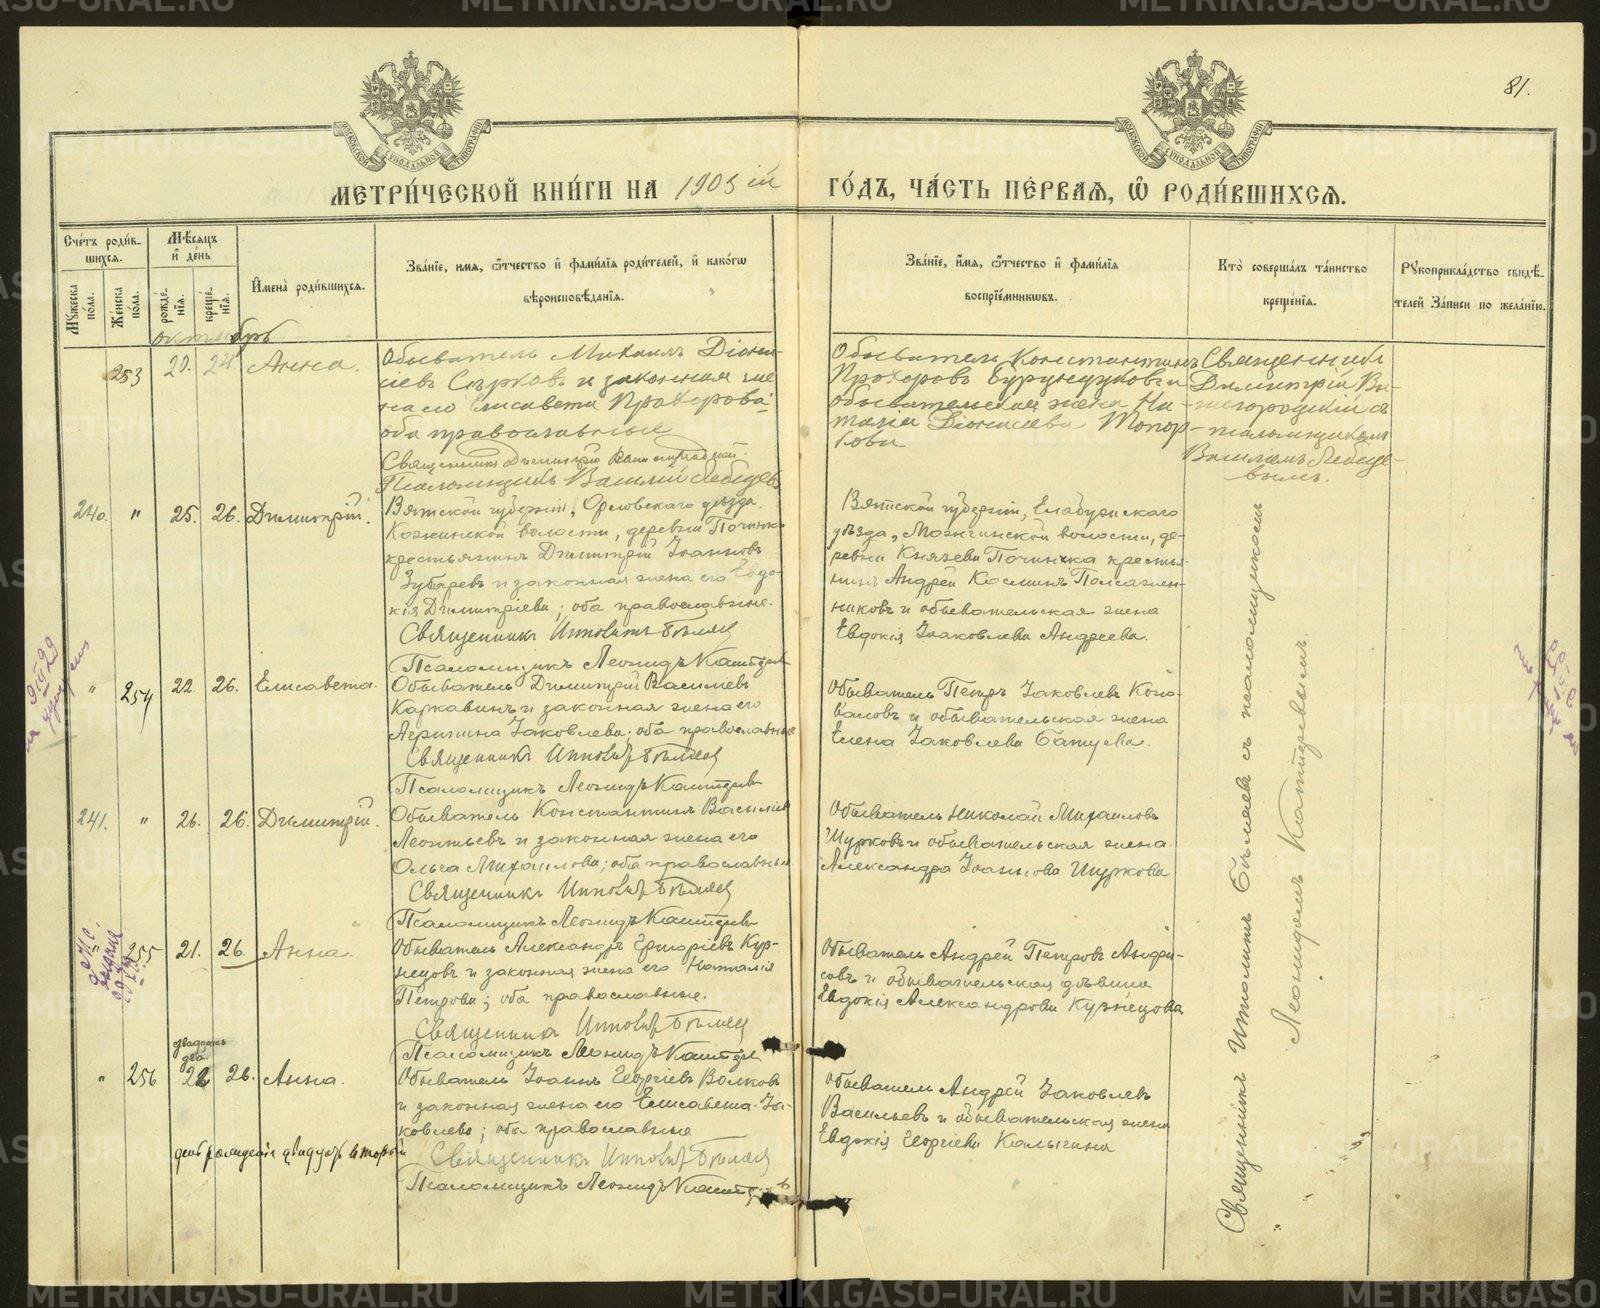 81.
МЕТРИ́ЧЕСКОЙ КНИ́ГИ НА 1903 ій ГО́ДЪ, ЧА́СТЬ ПЕ́РВАЯ, Ѿ РОДИ́ВШИХСѦ.
Сче́тъ роди́в-
шихся.
Мѣсяцъ
и де́нь
Мꙋжеска по́ла.
Же́нска по́ла.
рожде́-
нїѧ.
креще́-
нїѧ.
Имена̀ роди́вшихся.
Зва́нїе, имя, ѻ҆́тчество и҆ фами́лїѧ роди́телей, и҆ како́гѡ
вѣроисповѣ́данїѧ.
Зва́нїе, и҆́мя, ѻ҆́тчество и҆ фами́лїѧ
воспрїе́мникѡвъ.
Кто̀ соверша́лъ та́инство
креще́нїѧ.
Рꙋкоприкла́дство свидѣ́-
телей За́писи по жела́нїю.
октябрь
253 20. 24 Анна.
Обыватель Михаилъ Діони-
сіевъ Сѣрковъ и законная же
на его Елисавета Прохорова;
оба православные
Священникъ Димитрій
Псаломщикъ Василій Лебедевъ
Обыватель Константинъ
Прохоровъ Бурундуковъ и
обывательская жена На-
талія Діонисіева Топор-
кова
Священникъ
Димитрій Ни-
жегородскій съ
псаломщикомъ
Василіемъ Лебеде-
вымъ.
240. " 25. 26. Димитрій.
Вятской губерніи, Орловскаго уѣзда.
волости, деревни Починка
крестьянинъ Димитрій Іоанновъ
Зубаревъ и законная жена его Евдо-
кія Димитріева; оба православные.
Священникъ Ипполитъ Бѣляевъ
Псаломщикъ Леонидъ
Вятской губерніи, Елабужскаго
уѣзда, Можгинской волости, де-
ревни Князева Починка крестья-
нинъ Андрей Косминъ
и обывательская жена
Евдокія Іаковлева Андреева.
" 254 22. 26. Елисавета.
Обыватель Димитрій Васильевъ
Каржавинъ и законная жена его
Іаковлева; оба православные
Священникъ Ипполитъ Бѣляевъ
Псаломщикъ Леонидъ
Обыватель Петръ Іаковлевъ Коно-
валовъ и обывательская жена
Елена Іаковлева Батуева.
241. " 26. 26. Димитрій.
Обыватель Константинъ Василіевъ
Леонтьевъ и законная жена его
Ольга Михаилова; оба православные
Священникъ Ипполитъ Бѣляевъ
Псаломщикъ Леонидъ
Обыватель Николай Михаиловъ
Шурковъ и обывательская жена
Александра Іоаннова Шуркова
" 255 21. 26 Анна.
Обыватель Александръ Григоріевъ Куз-
нецовъ и законная жена его Наталія
Петрова; оба православные.
Священникъ Ипполитъ Бѣляевъ
Псаломщикъ Леонидъ
Обыватель Андрей Петровъ Андре-
евъ и обывательская дѣвица
Евдокія Александрова Кузнецова
двадцать
два
" 256 22 26. Анна.
Обыватель Іоаннъ Георгіевъ Волковъ
и законная жена его Елисавета Іа-
ковлева; оба православные
день рожденія двадцать второй
Священникъ Ипполитъ Бѣляевъ
Псаломщикъ Леонидъ
Обыватель Андрей Іаковлевъ
Васильевъ и обывательская жена
Евдокія Георгіева Калыгина
Священникъ Ипполитъ Бѣляевъ съ псаломщикомъ
Леонидомъ